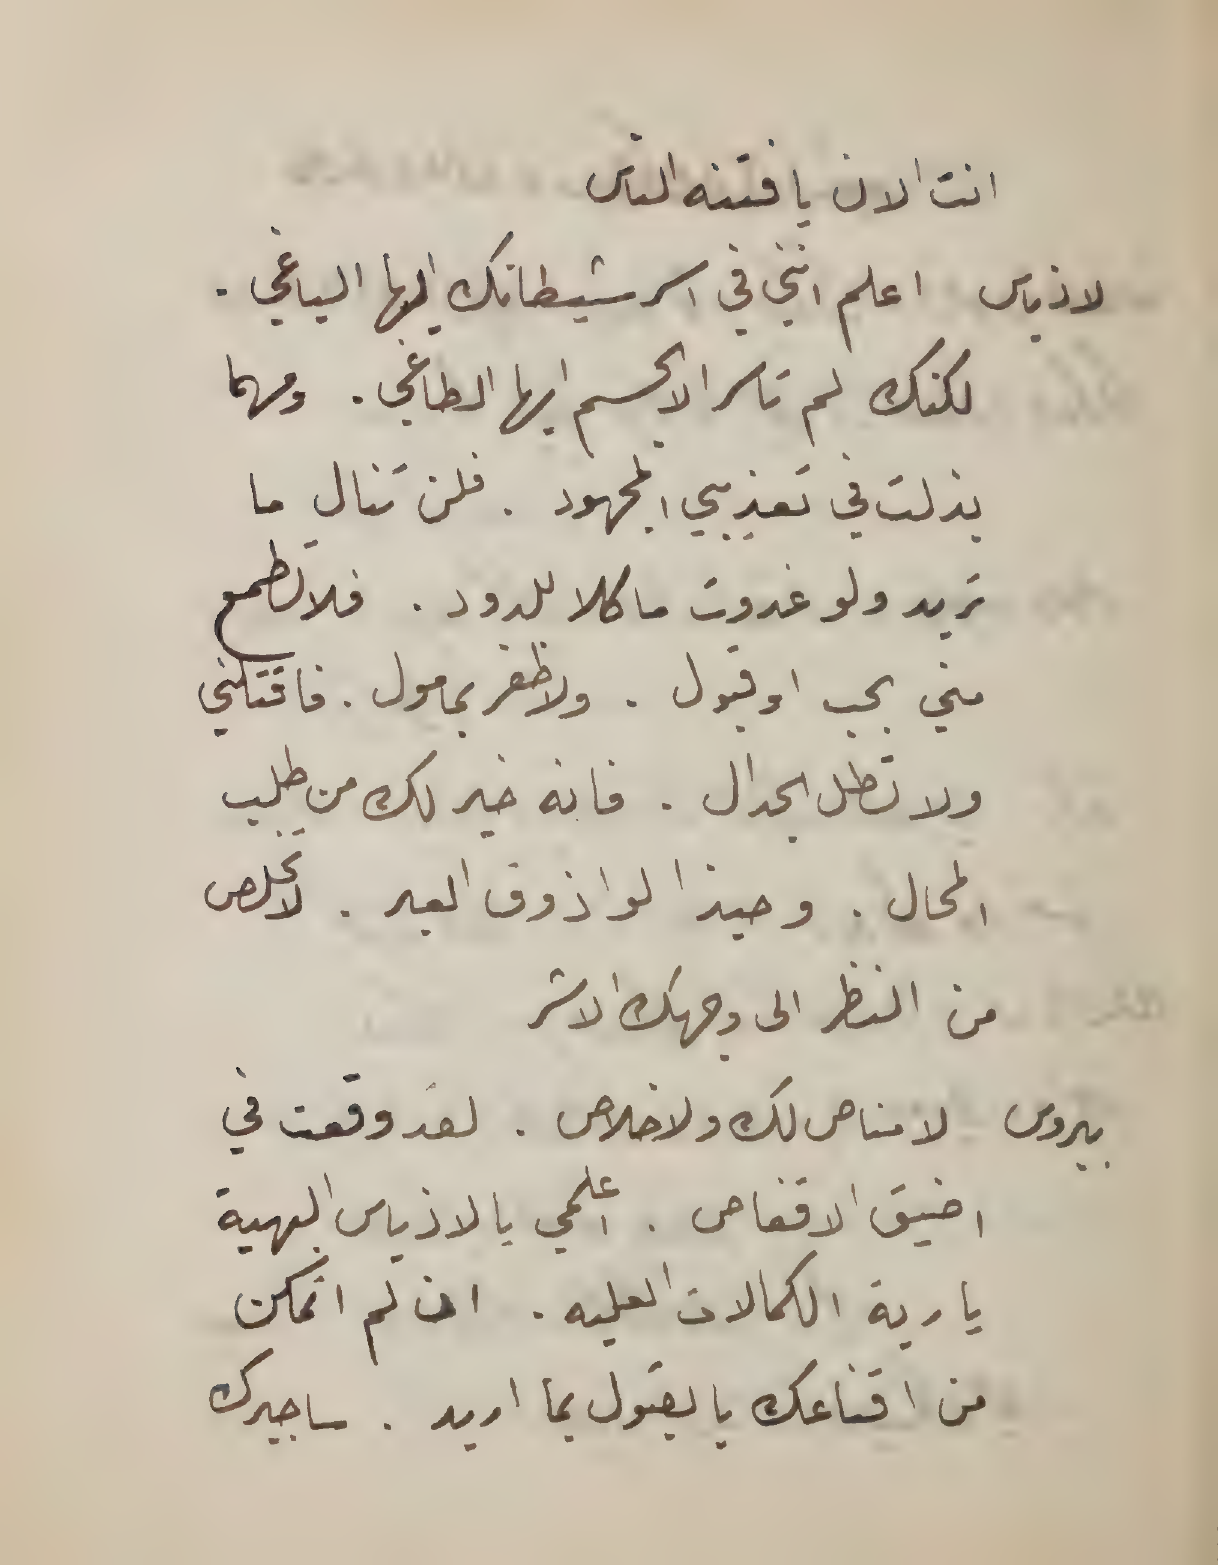 انت الان يا فتنه الناس
لاذياس اعلم انني في اسر شيطانك ايها الباغي .
لكنك لم تاسر الا الجسم ايها الطاغي . ومهما
بذلت في تعذيبي المجهود . فلن تنال ما
تريد ولو غدوت ماكلا للدود . فلا تطمع
مني بحب او قبول . ولا ظفر بمامول . فاقتلني
ولا تطل الجدال . فانه خير لك من طلب
المحال . وحبذا لو اذوق العبر . لاتخلص
من النظر الى وجهك الاشر
بيروس لا مناص لك ولا خلاص . لقد وقعت في
اضيق الاقفاص . اعلمي يا لاذياس البهية
يا ربة الكمالات العليه . ان لم اتمكن
من اقناعك بالقبول بما اريد . ساجبرك